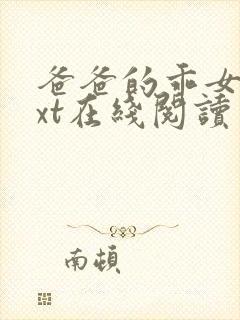 爸爸的乖女
xt在綫閱讀
南頓